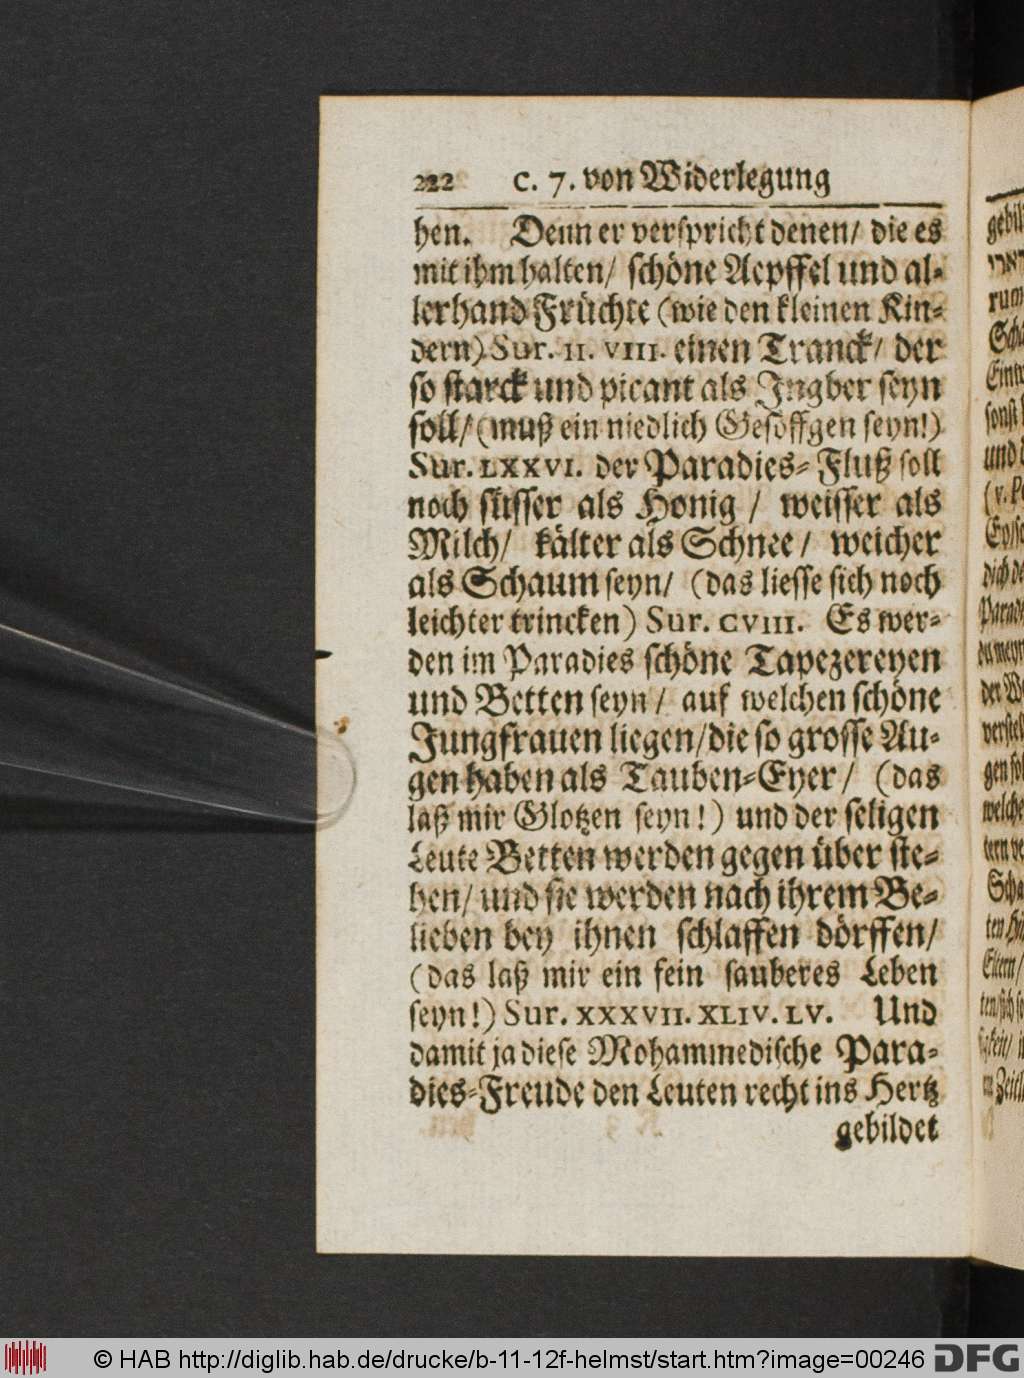 222 c. 7. von Widerlegung
hen. Denn er verspricht denen/ die es
mit ihm halten/ schöne Aepffel und al-
lerhand Früchte (wie den kleinen Kin-
dern) Sur. II. VIII. einen Tranck/ der
so starck und picant als Ingber seyn
soll/ (muß ein niedlich Gesöffgen seyn!)
Sur. LXXVI. der Paradies-Fluß soll
noch süsser als Honig / weisser als
Milch/ kälter als Schnee / weicher
als Schaum seyn/ (das liesse sich noch
leichter trincken) Sur. CVIII. Es wer-
den im Paradies schöne Tapezereyen
und Betten seyn / auf welchen schöne
Jungfrauen liegen/ die so grosse Au-
gen haben als Tauben-Eyer / (das
laß mir Glotzen seyn!) und der seligen
Leute Betten werden gegen über ste-
hen/ und sie werden nach ihrem Be-
lieben bey ihnen schlaffen dörffen/
(das laß mir ein fein sauberes Leben
seyn!) Sur. XXXVII. XLIV. LV. Und
damit ja diese Mohammedische Para-
dies-Freude den Leuten recht ins Hertz
gebildet
© HAB http://diglib.hab.de/drucke/b-11-12f-helmst/start.htm?image=00246 DFG